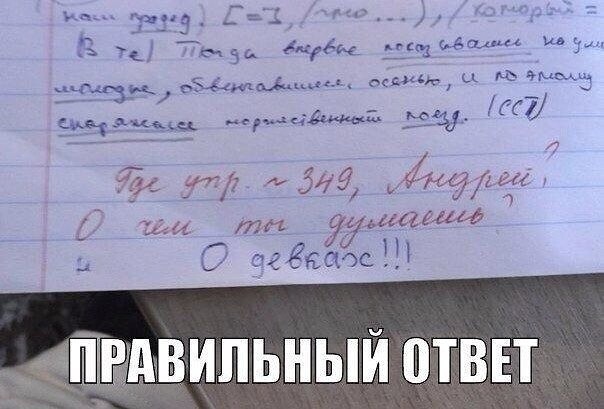 наш прадед), [=], (что ...), (который =
(В те) Тогда впервые показывались на ули
молодые, обвенчавшиеся осенью, и по этому
снаряжался торжественный поезд. (ССП)
Где упр. ~ 349, Андрей?
О чем ты думаешь?
О девках!!!
ПРАВИЛЬНЫЙ ОТВЕТ